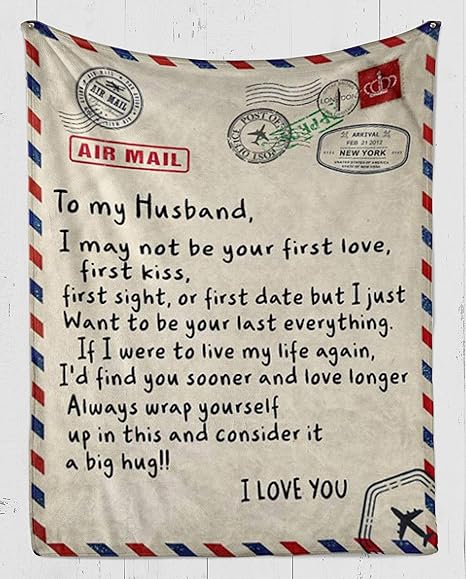 AIR MAIL
LONDON
POST OFFICE
ARRIVAL
FEB 21 2012
NEW YORK
UNITED STATES OF AMERICA
STATE OF NEW YORK
AIR MAIL
To my Husband,
I may not be your first love,
first kiss,
first sight, or first date but I just
Want to be your last everything.
If I were to live my life again,
I'd find you sooner and love longer
Always wrap yourself
up in this and consider it
a big hug!!
I LOVE YOU